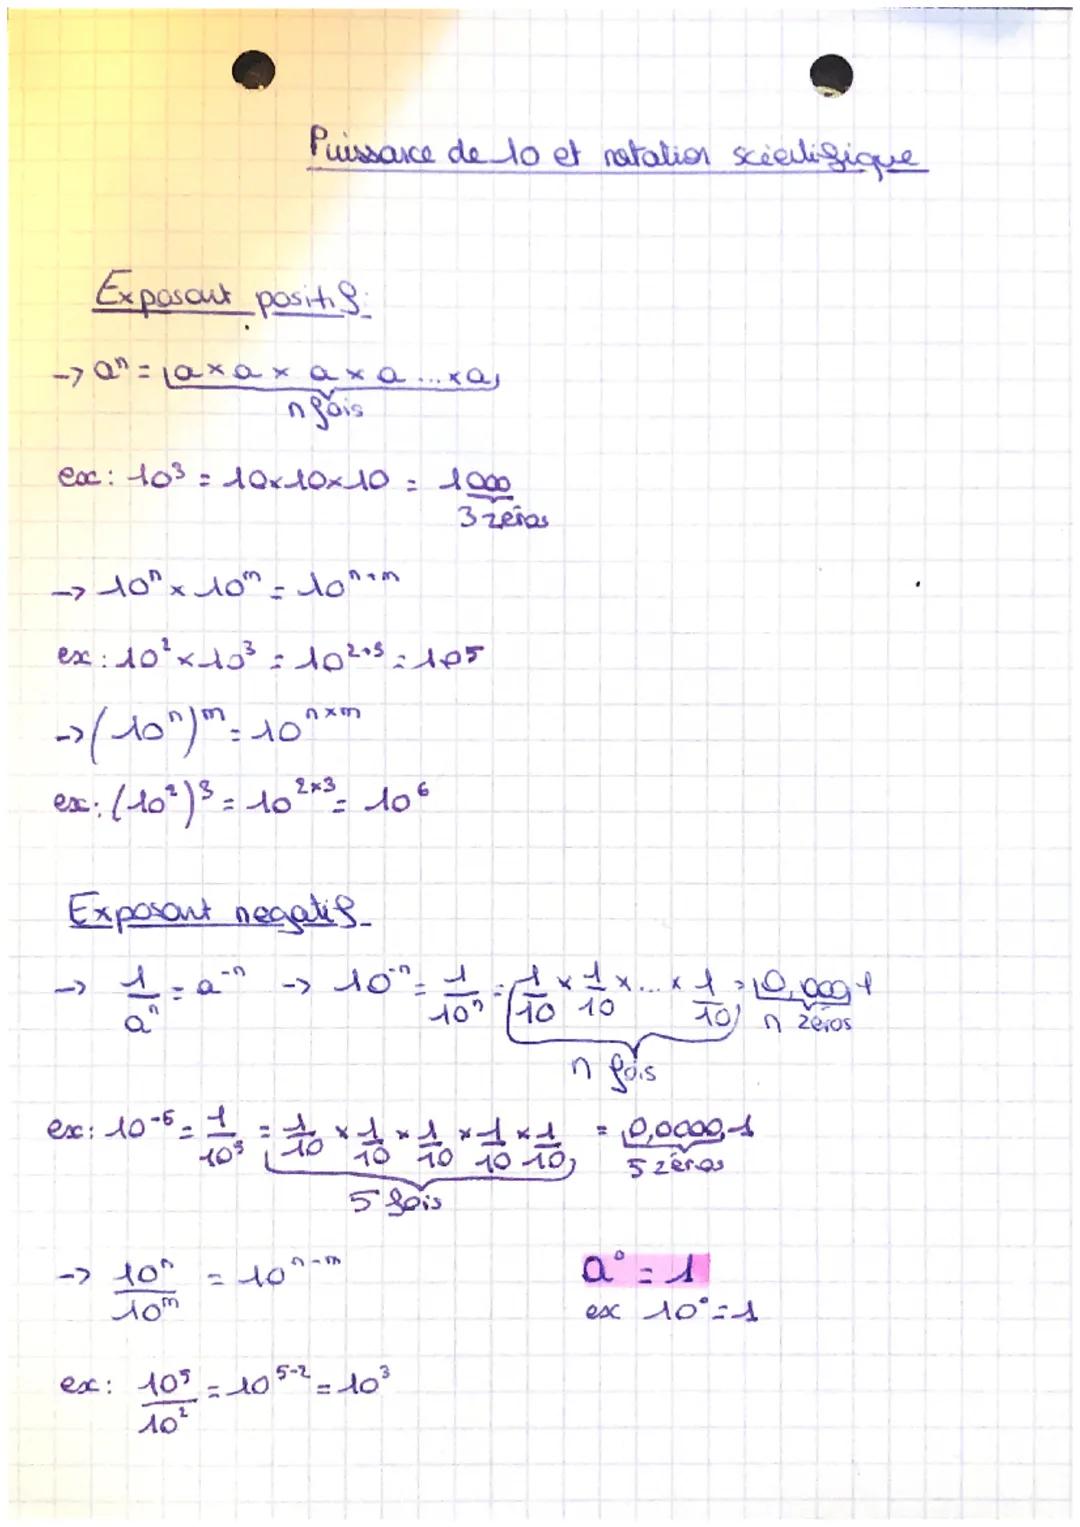 Puissance de 10 et notation scientifique
Exposant positif:
-> aⁿ = a × a × a × a ... × a
n fois
ex: 10³ = 10×10×10 = 1000
3 zéros
-> 10ⁿ × 10ᵐ = 10ⁿ⁺ᵐ
ex: 10² × 10³ = 10²⁺³ = 10⁵
-> (10ⁿ)ᵐ = 10ⁿˣᵐ
ex: (10²)³ = 10²ˣ³ = 10⁶
Exposant negatif
-> 1/aⁿ = a⁻ⁿ -> 10⁻ⁿ = 1/10ⁿ = 1/10 × 1/10 × ... × 1/10 = 0,0001
n fois n zéros
ex: 10⁻⁵ = 1/10⁵ = 1/10 × 1/10 × 1/10 × 1/10 × 1/10 = 0,00001
5 fois 5 zéros
-> 10ⁿ/10ᵐ = 10ⁿ⁻ᵐ
a° = 1
ex 10° = 1
ex: 10⁵/10² = 10⁵⁻² = 10³